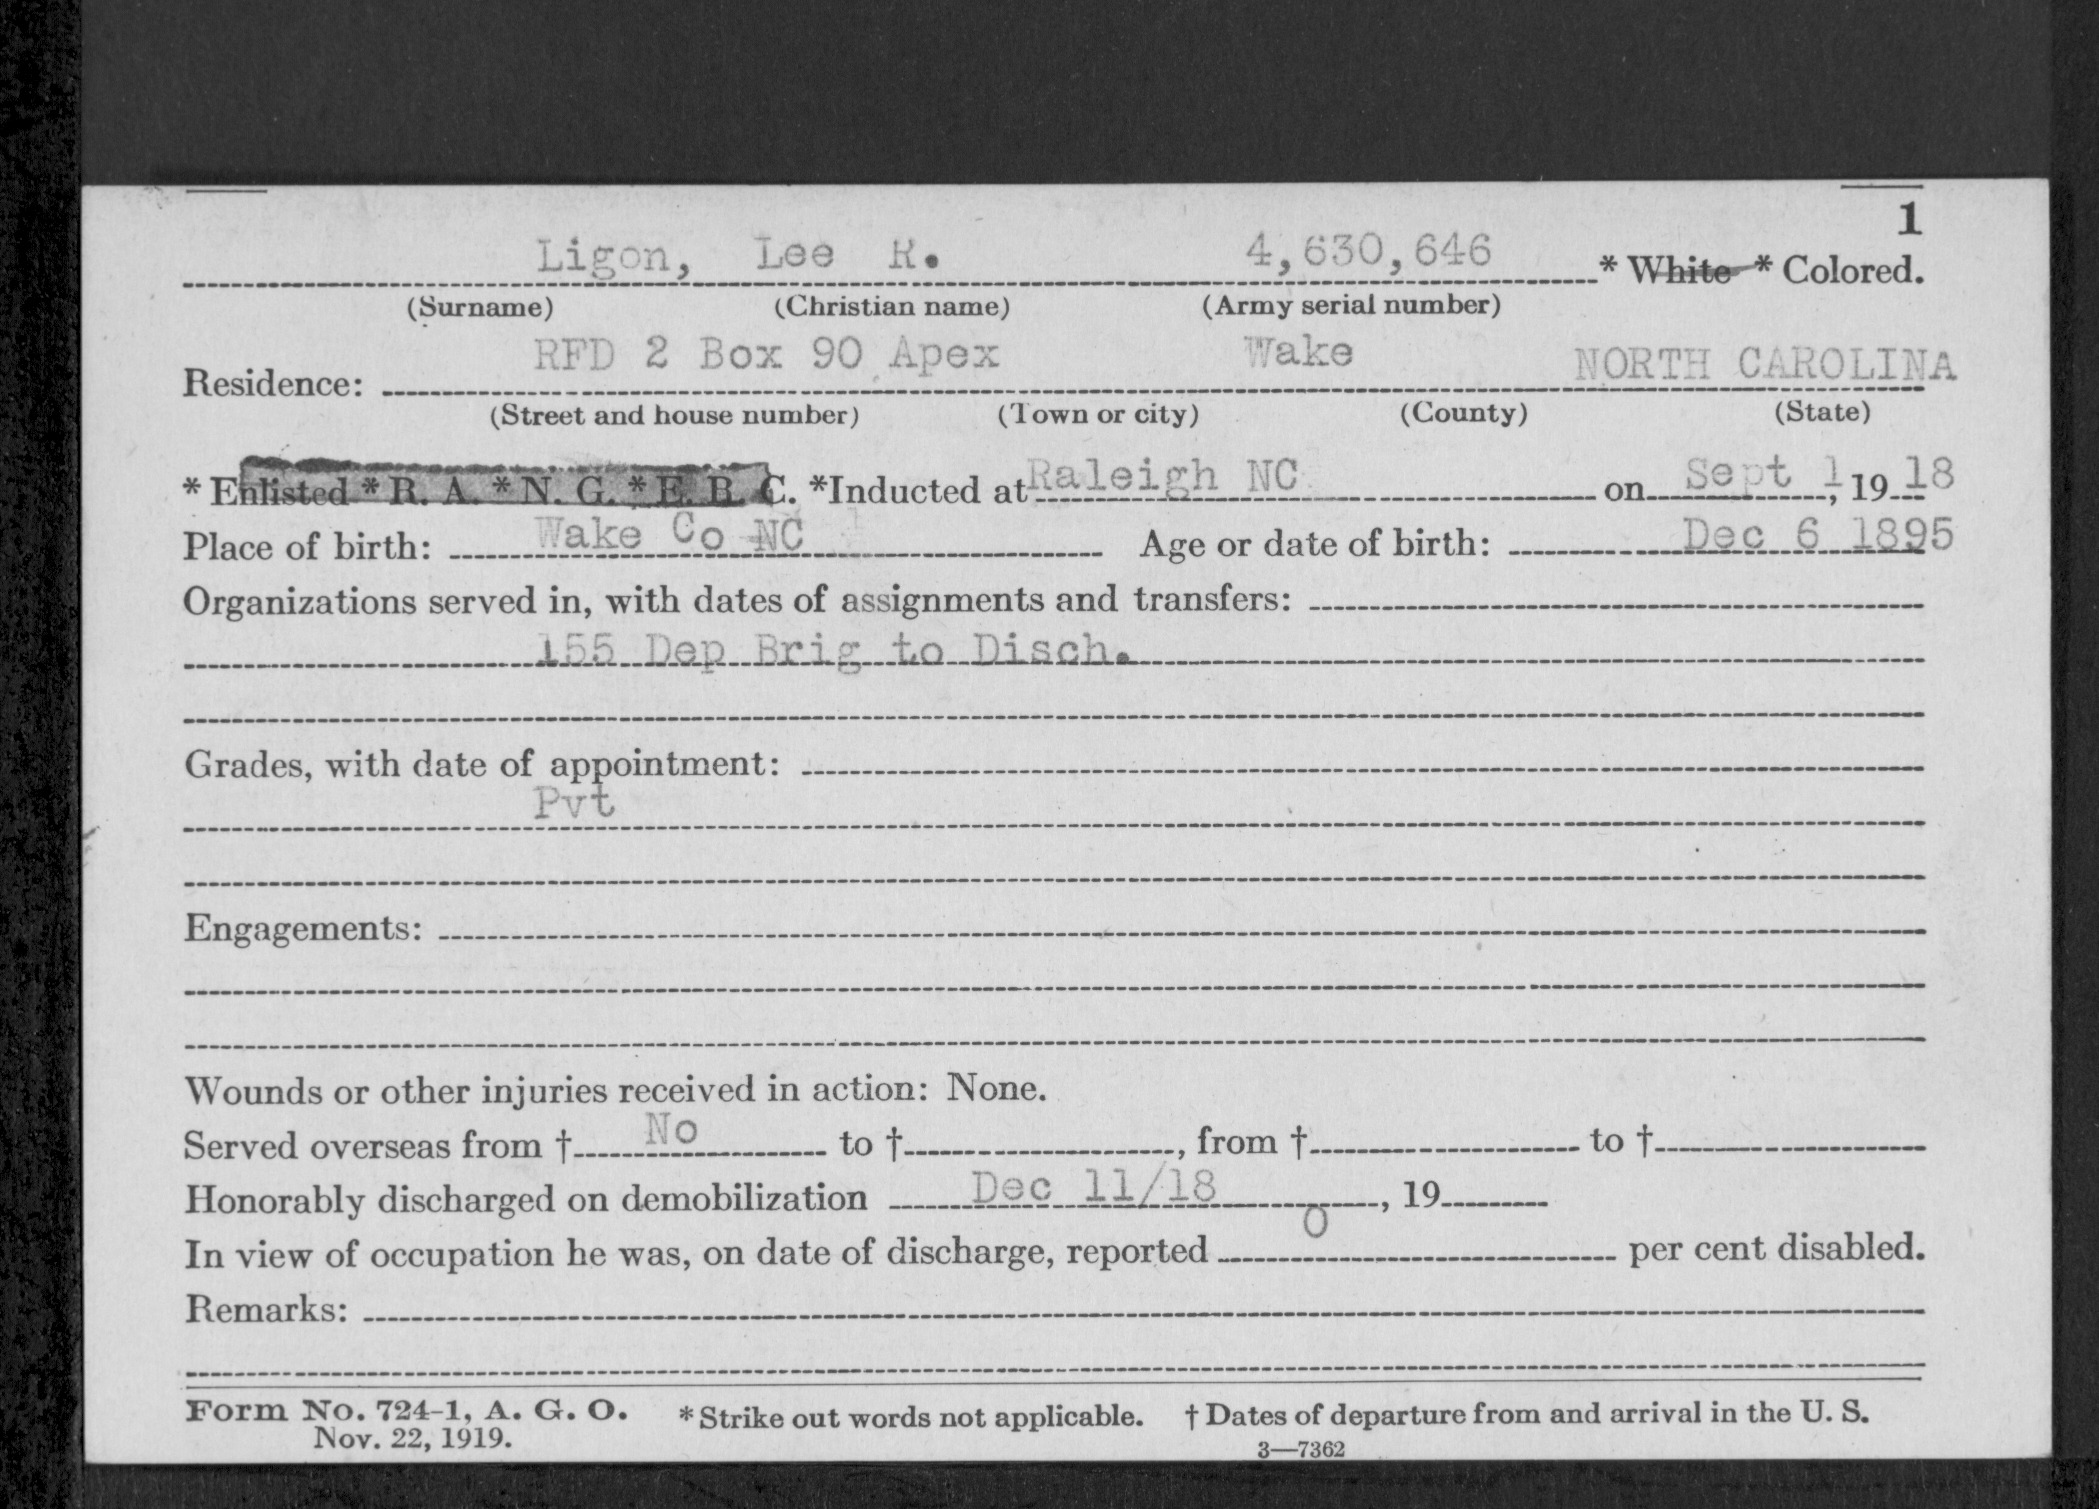 1
Ligon, Lee R. 4,630,646 * White * Colored.
(Surname) (Christian name) (Army serial number)
Residence: RFD 2 Box 90 Apex Wake NORTH CAROLINA
(Street and house number) (Town or city) (County) (State)
* Enlisted * R. A. * N. G. * E. R. C. *Inducted at Raleigh NC on Sept 1, 19 18
Place of birth: Wake Co NC Age or date of birth: Dec 6 1895
Organizations served in, with dates of assignments and transfers:
155 Dep Brig to Disch.
Grades, with date of appointment:
Pvt
Engagements:
Wounds or other injuries received in action: None.
Served overseas from † No to † , from † to †
Honorably discharged on demobilization Dec 11/18 , 19
In view of occupation he was, on date of discharge, reported 0 per cent disabled.
Remarks:
Form No. 724-1, A. G. O. * Strike out words not applicable. † Dates of departure from and arrival in the U. S.
Nov. 22, 1919.
3—7362